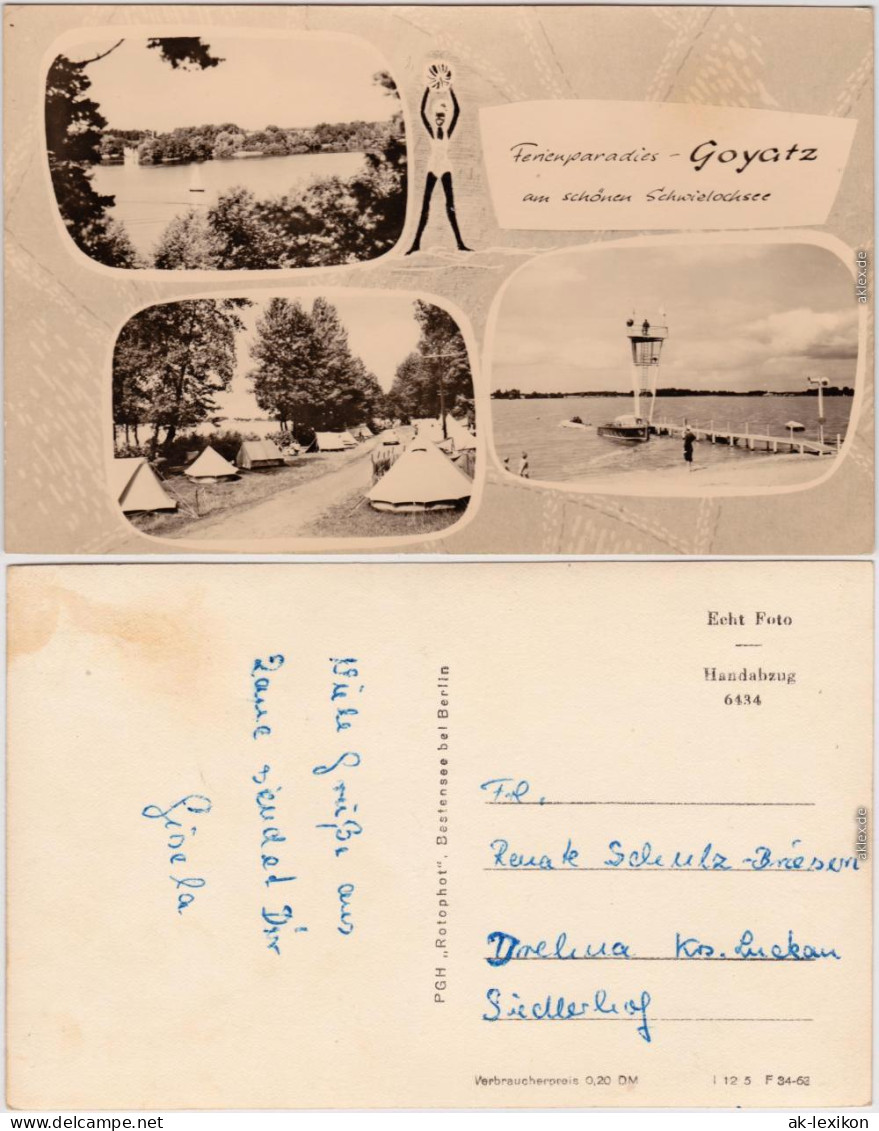 Ferienparadies - Goyatz
am schönen Schwielochsee
aklex.de
Echt Foto
Handabzug
6434
Viele Grüße aus
sendet Dir
Gisela
PGH „Rotophot", Bestensee bei Berlin
Frl.
Renate Schulz-Briesen
Drehna Krs. Luckau
Siedlerhof
aklex.de
Verbraucherpreis 0,20 DM
I 12 5 F 34-62
ak-lexikon